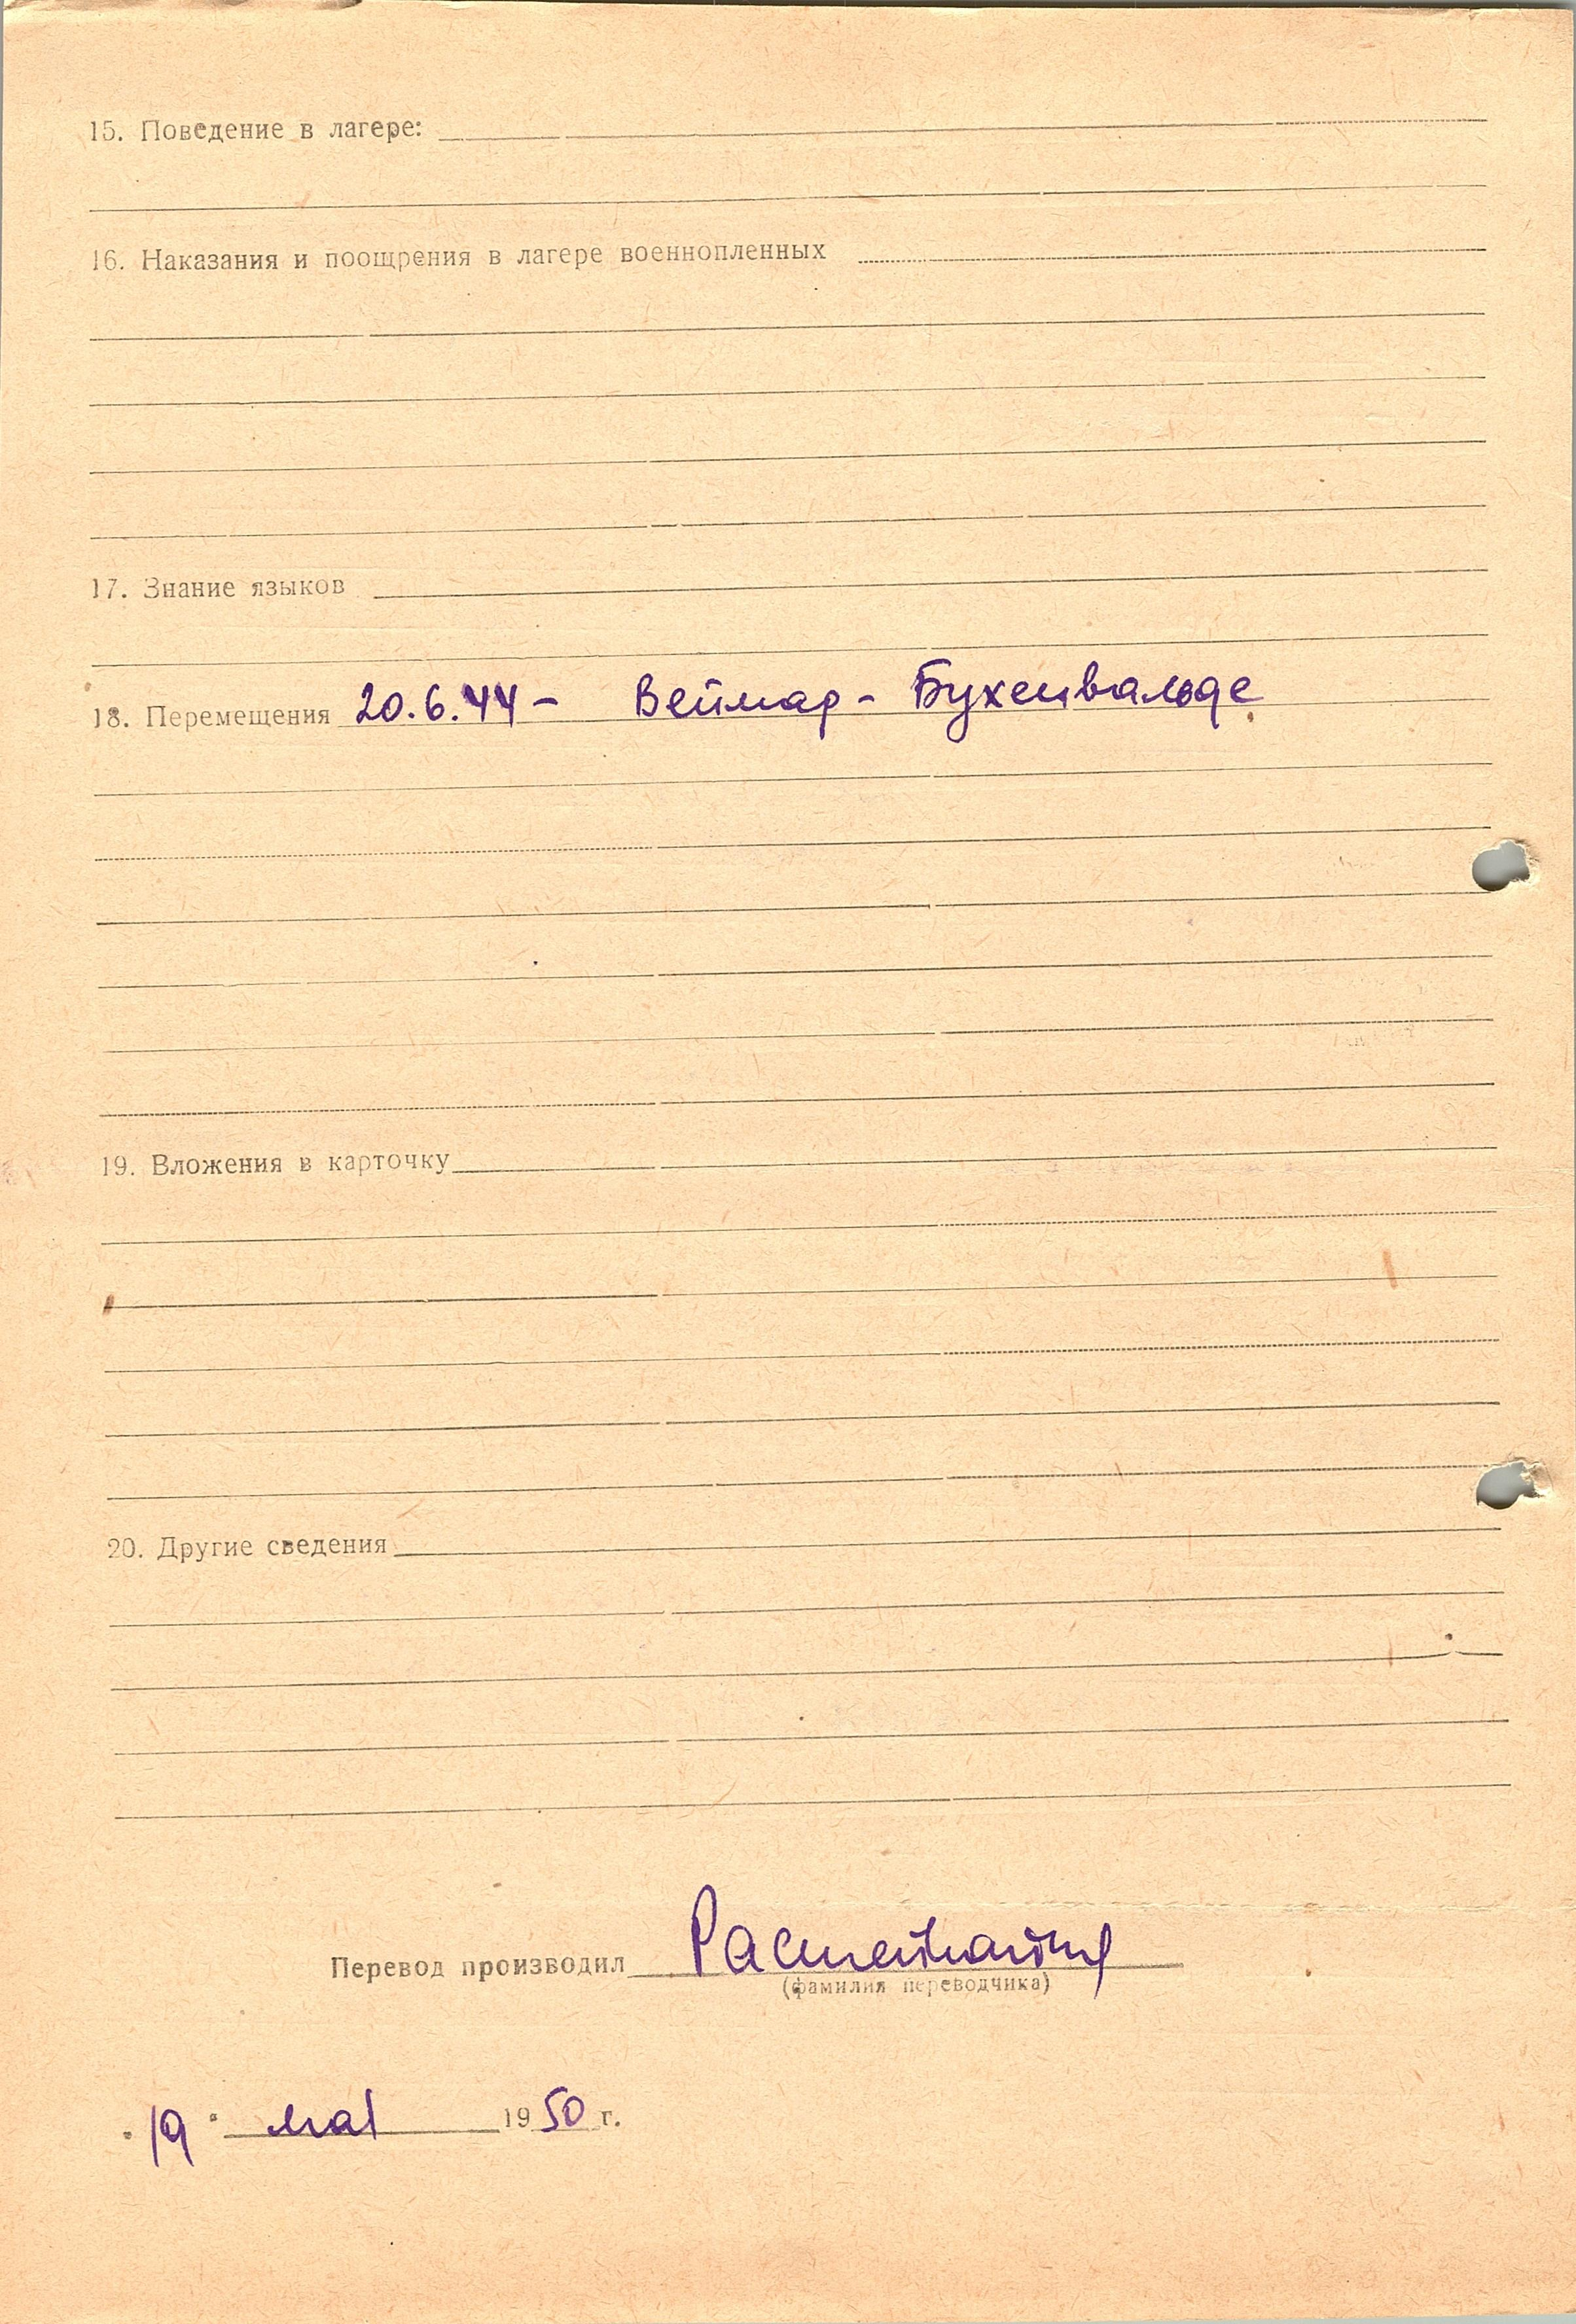 15. Поведение в лагере:
16. Наказания и поощрения в лагере военнопленных
17. Знание языков
18. Перемещения 20.6.44 - Веймар - Бухенвальде
19. Вложения в карточку
20. Другие сведения
Перевод производил
(фамилия переводчика)
"19" мая 1950 г.